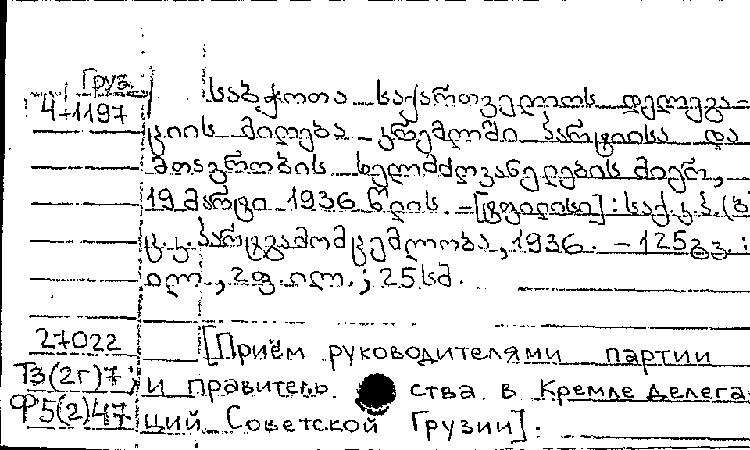 Груз.
4-1197
საბჭოთა საქართველოს დელეგა-
ციის მიღება კრემლში პარტიისა და
მთავრობის ხელმძღვანელების მიერ,
19 მარტი 1936 წლის. -[ტფილისი]: საქ.კ.პ.(ბ
ც.კ. პარტგამომცემლობა, 1936. - 125 გვ. :
ილ., 2 ფ. ილ.; 25 სმ.
27022
[Приём руководителями партии
Т3(2г)7;
и правитель ства в Кремле делега
Ф5(2)47
ций Советской Грузии].